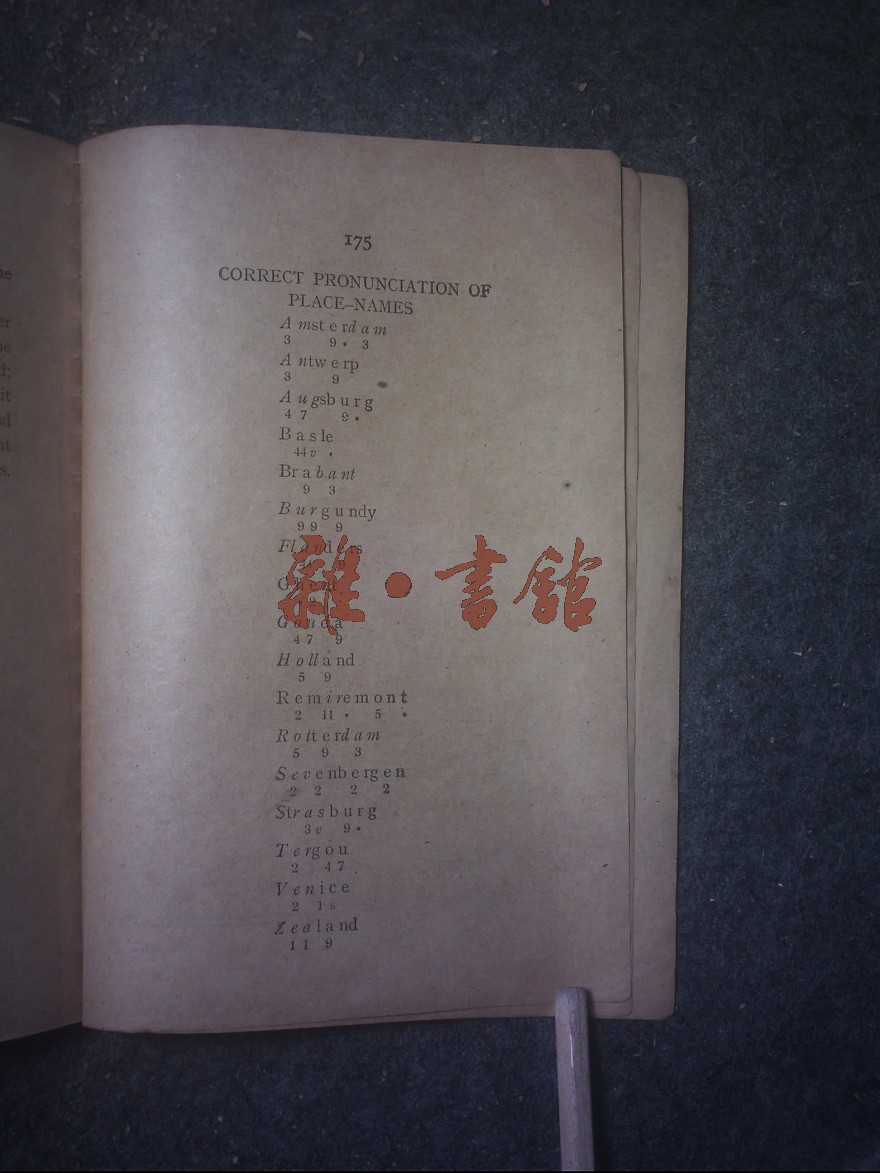 ne
er
he
d;
it
nd
nt
s.
175
CORRECT PRONUNCIATION OF
PLACE-NAMES
Amsterdam
3 9 • 3
Antwerp
3 9
Augsburg
4 7 9 •
Basle
44v •
Brabant
9 3
Burgundy
9 9 9
Flanders
Gouda
4 7 9
Holland
5 9
Remiremont
2 11 • 5 •
Rotterdam
5 9 3
Sevenbergen
2 2 2 2
Strasburg
3v 9 •
Tergou
2 4 7
Venice
2 1 s
Zealand
1 1 9
雜·書館